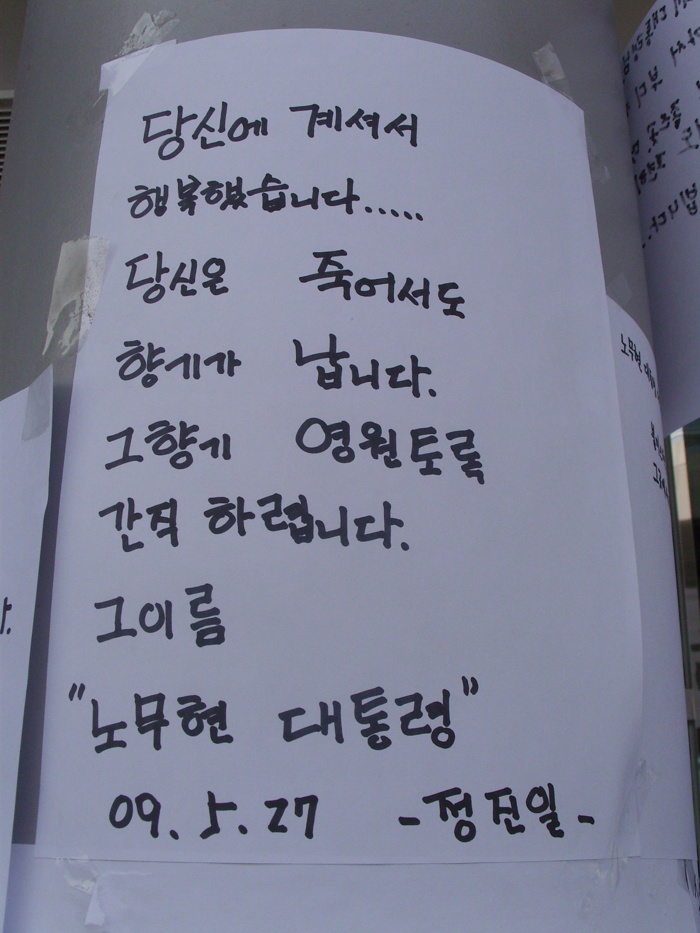 당신에 계셔서
행복했습니다.....
당신은 죽어서도
향기가 납니다.
그향기 영원토록
간직 하렵니다.
그이름
"노무현 대통령"
09. 5. 27 -정진일-
노무현